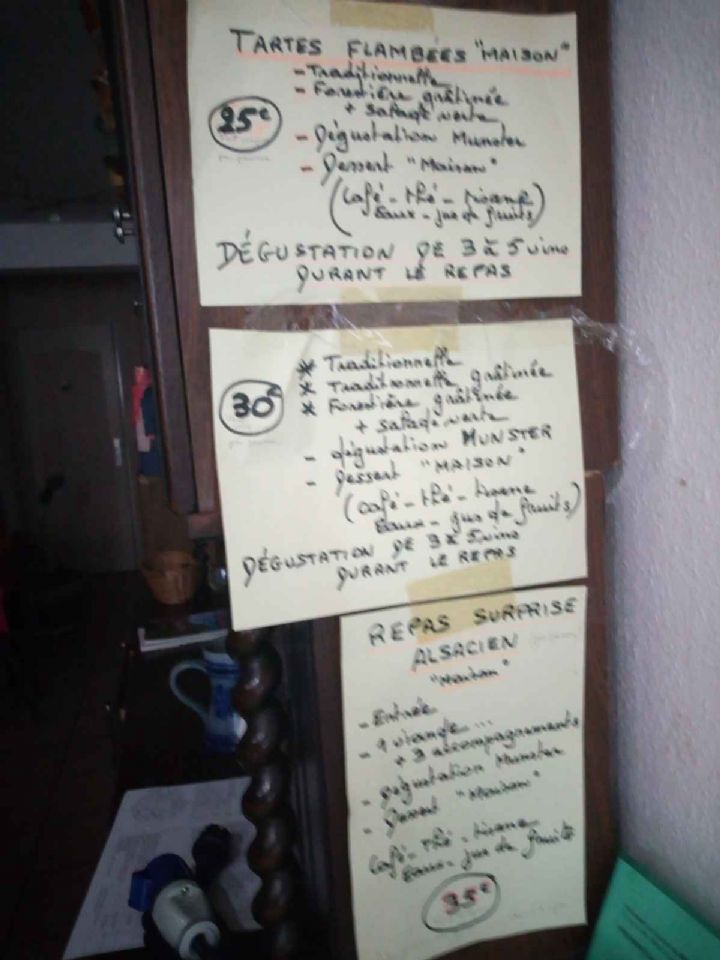 TARTES FLAMBÉES "MAISON"
25€
- Traditionnelle
- Forestière grâtinée
+ salade verte
- Dégustation Munster
- Dessert "Maison"
(café - thé - tisane
Eaux - jus de fruits)
DÉGUSTATION DE 3 à 5 vins
DURANT LE REPAS
30€
* Traditionnelle
* Traditionnelle grâtinée
* Forestière grâtinée
+ salade verte
- dégustation MUNSTER
- Dessert "MAISON"
(café - thé - tisane
Eaux - jus de fruits)
DÉGUSTATION DE 3 à 5 vins
DURANT LE REPAS
REPAS SURPRISE
ALSACIEN
"Maison"
- Entrée
- 1 viande ...
+ 3 accompagnements
- Dégustation Munster
- Dessert "Maison"
Café - thé - tisane
Eaux - jus de fruits
35€